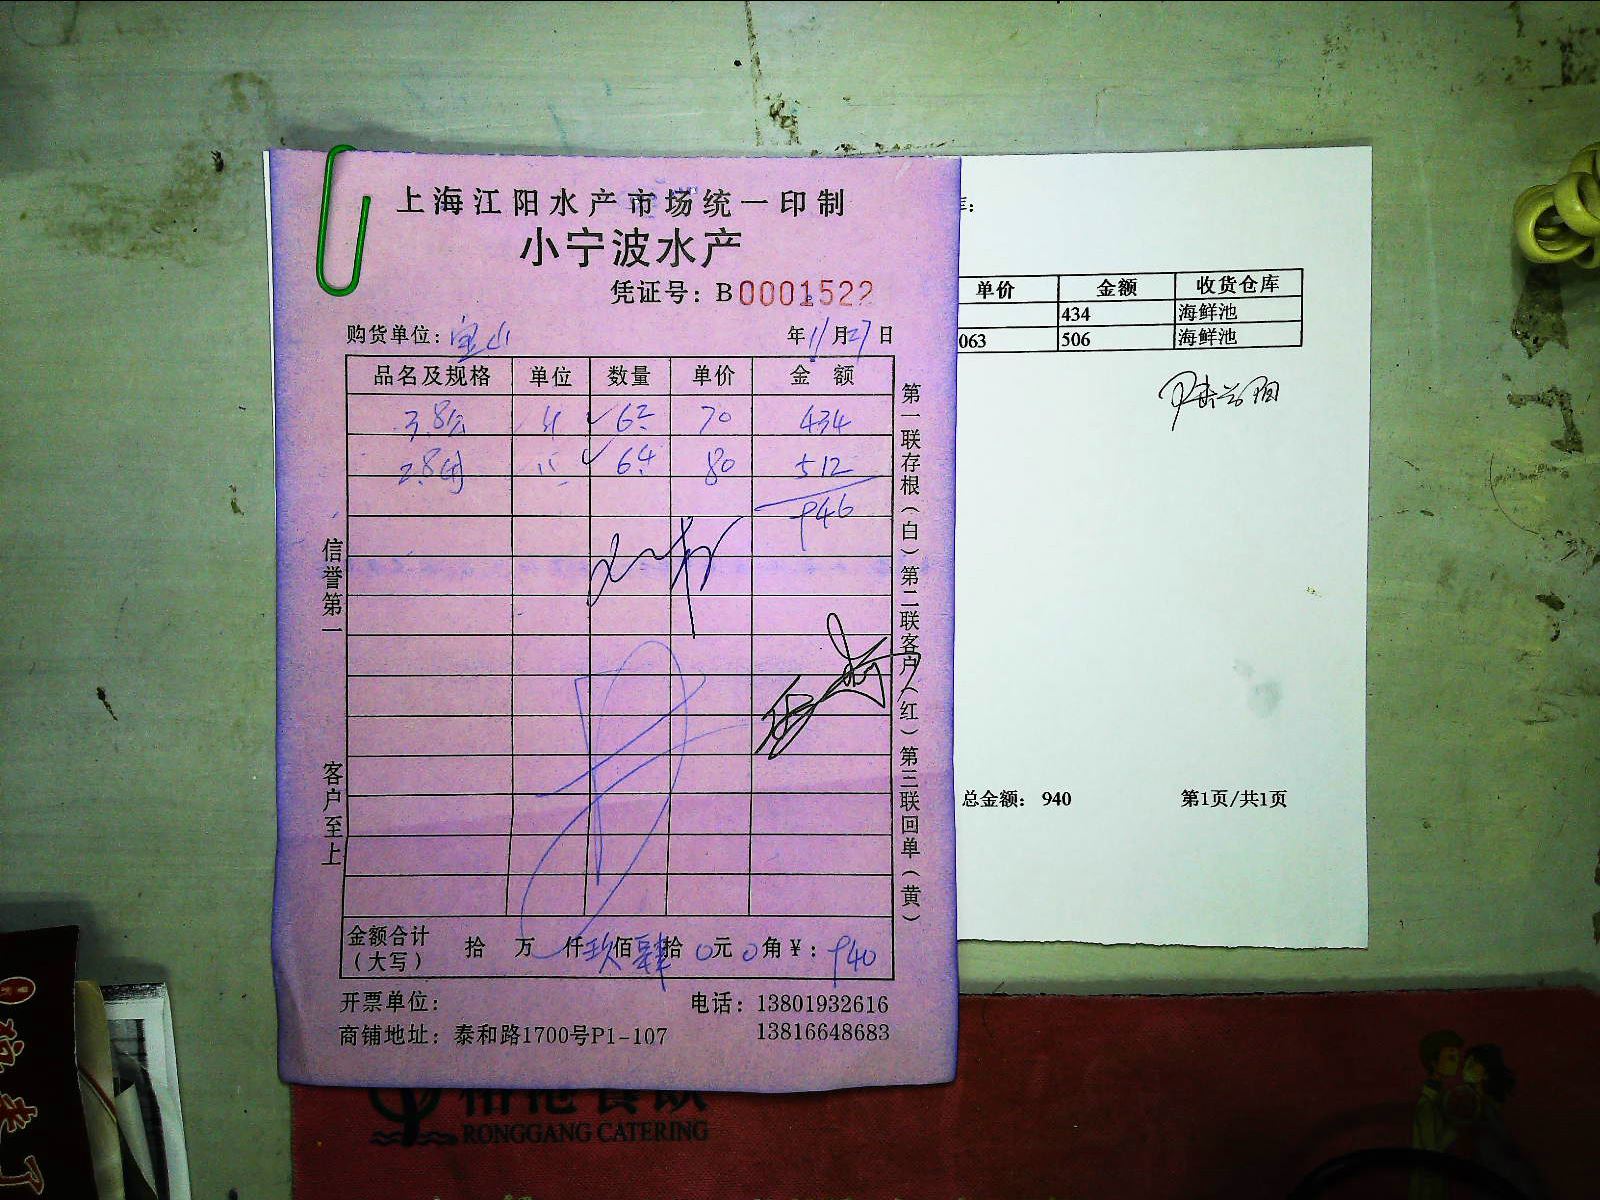 上海江阳水产市场统一印制
小宁波水产
凭证号：B0001522
购货单位：宝山 年11月27日
品名及规格 单位 数量 单价 金额
3.8公 斤 62 70 434
2.8母 64 80 512
946
信誉第一
客户至上
第一联存根（白）第二联客户（红）第三联回单（黄）
金额合计（大写） 拾 万 仟玖佰肆拾0元0角¥：940
开票单位： 电话：13801932616
商铺地址：泰和路1700号P1-107 13816648683
单价 金额 收货仓库
434 海鲜池
063 506 海鲜池
总金额： 940 第1页/共1页
RONGGANG CATERING